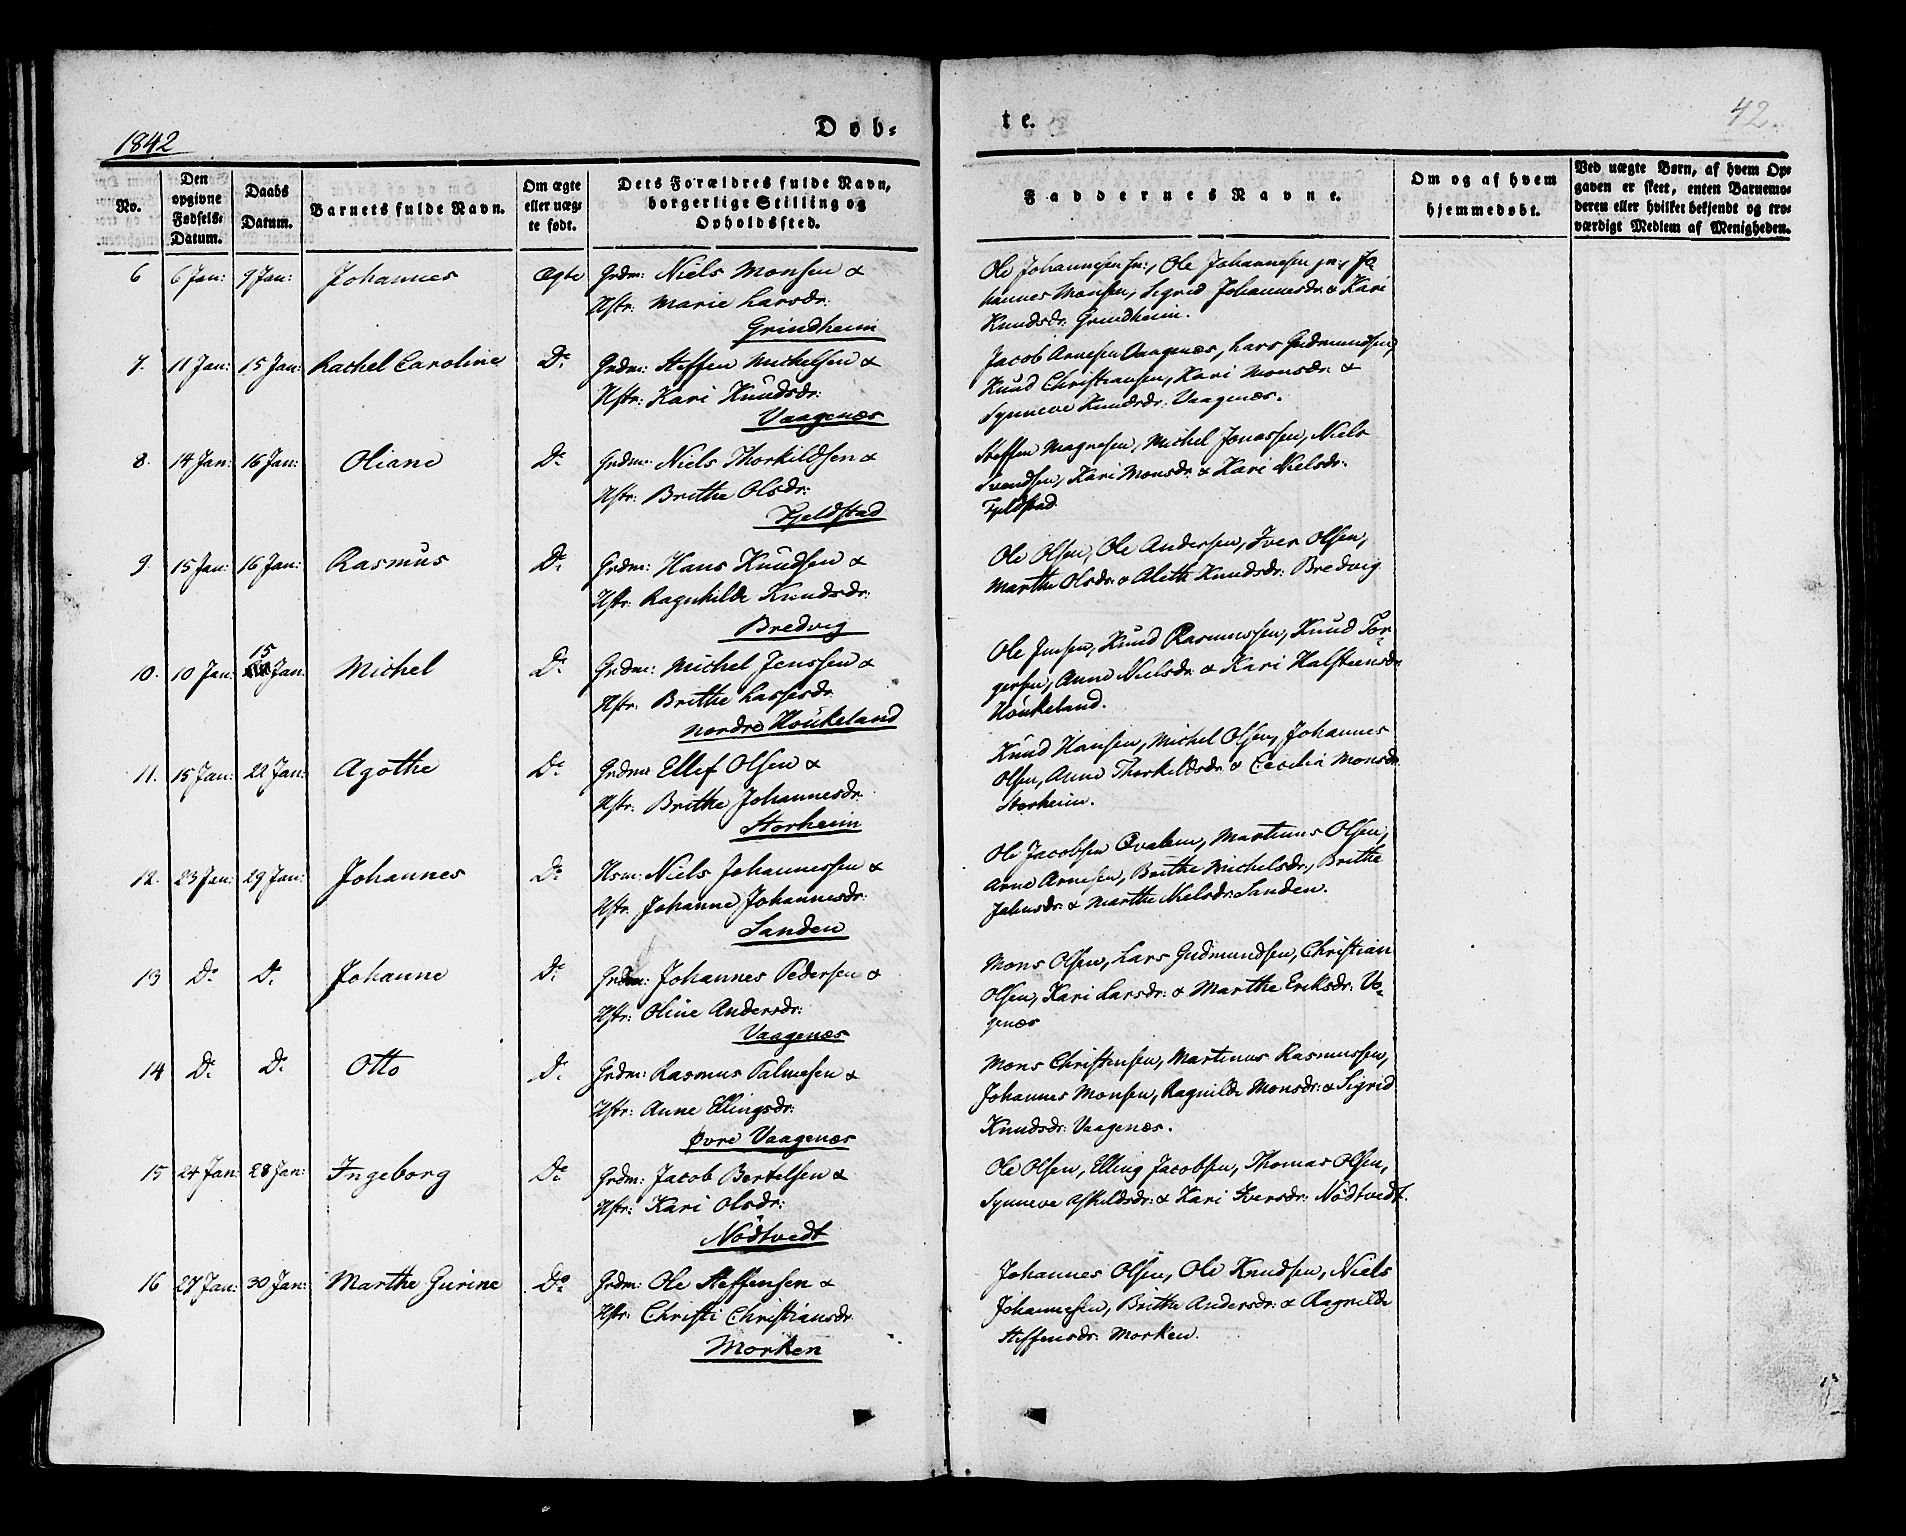 1842
Døb-
te.
42.
No.
Den opgivne Fødsels-Datum.
Daabs Datum.
Barnets fulde Navn.
Om ægte eller uæg-te født.
Dets Forældres fulde Navn, borgerlige Stilling og Opholdssted.
Faddernes Navne.
Om og af hvem hjemmedøbt.
Ved uægte Børn, af hvem Op-gaven er skeet, enten Barnemo-deren eller hvilket bekjendt og tro-værdigt Medlem af Menigheden.
6 6 Jan: 9 Jan: Johannes Ægte Grdm: Niels Monsen &
Hstr: Marie Larsdr:
Grindheim
Ole Johannesen sn:, Ole Johannesen jn:, Jo-
hannes Monsen, Sigrid Johannesdr: & Kari
Knudsdr: Grindheim.
7. 11 Jan: 15 Jan: Rachel Caroline Do. Grdm: Steffen Michelsen &
Hstr: Kari Knudsdr:
Vaagenæs
Jacob Arnesen Vaagenæs, Lars Gudmundsen,
Knud Christiansen, Kari Monsdr: &
Synneve Knudsdr: Vaagenæs.
8. 14 Jan: 16 Jan: Oliane Do. Grdm: Niels Thorkildsen &
Hstr: Brithe Olsdr:
Fjeldstad
Steffen Magnesen, Michel Jonassen, Niels
Svendsen, Kari Monsdr: & Kari Nielsdr:
Fjeldstad.
9. 15 Jan: 16 Jan: Rasmus Do. Grdm: Hans Knudsen &
Hstr: Ragnhilde Knudsdr:
Bredvig
Ole Olsen, Ole Andersen, Iver Olsen,
Marthe Olsdr: & Alethe Knudsdr: Bredvig
10. 10 Jan: 15 Jan: Michel Do. Grdm: Michel Jenssen &
Hstr: Brithe Lassesdr:
nordre Houkeland
Ole Jensen, Knud Rasmussen, Knud Tor-
gersen, Anne Nielsdr: & Kari Halsteensdr:
Houkeland.
11. 15 Jan: 22 Jan: Agothe Do. Grdm: Ellef Olsen &
Hstr: Brithe Johannesdr:
Storheim
Knud Hansen, Michel Olsen, Johannes
Olsen, Anne Thorkildsdr: & Cecilie Monsdr:
Storheim.
12. 23 Jan: 29 Jan: Johannes Do. Hsm: Niels Johannessen &
Hstr: Johanne Johannesdr:
Sanden
Ole Jacobsen Qvalem, Martinus Olsen,
Arne Arnesen, Brithe Michelsdr:, Brithe
& Marthe Nielsdr: Sanden.
13 Do. Do. Johanne Do. Grdm: Johannes Pedersen &
Hstr: Oline Andersdr:
Vaagenæs
Mons Olsen, Lars Gudmundsen, Christian
Olsen, Kari Larsdr: & Marthe Eriksdr: Va-
genæs
14 Do. Do. Otto Do. Grdm: Rasmus Palmesen &
Hstr: Anne Ellingsdr:
Øvre Vaagenæs
Mons Christensen, Martinus Rasmussen,
Johannes Monsen, Ragnilde Monsdr: & Sigrid
Knudsdr: Vaagenæs.
15 24 Jan: 28 Jan: Ingeborg Do. Grdm: Jacob Bertelsen &
Hstr: Kari Olsdr:
Nödtvedt
Ole Olsen, Elling Jacobsen, Thomas Olsen,
Synneve Askildsdr: & Kari Iversdr: Nödtvedt.
16 27 Jan: 30 Jan: Marthe Gurine Do. Grdm: Ole Steffensen &
Hstr: Christi Christiansdr:
Morken
Johannes Olsen, Ole Knudsen, Niels
Johannesen, Brithe Andersdr: & Ragnilde
Steffensdr: Morken.